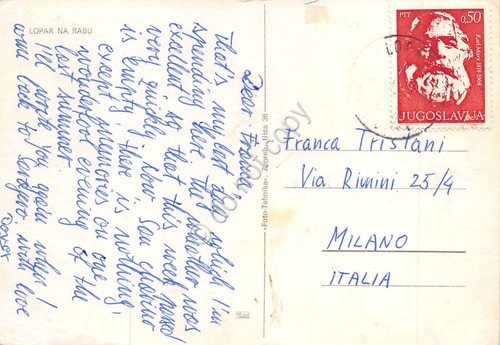 LOPAR NA RABU
Dear Franca,
that's my last day which I'm
spending here. The weather was
excellent so that this week passed
very quickly. Now San Marino
is empty, there is nothing
except memories on one
wonderful evening of the
last summer.
I'll wrote you again when I
come back to Sarajevo, with love
Foto-Tehnika - Zagreb, Ilica 36
PTT
0,50
Karl Marx 1818-1968
JUGOSLAVIJA
LOPAR
Franca Tristani
Via Rimini 25/4
MILANO
ITALIA